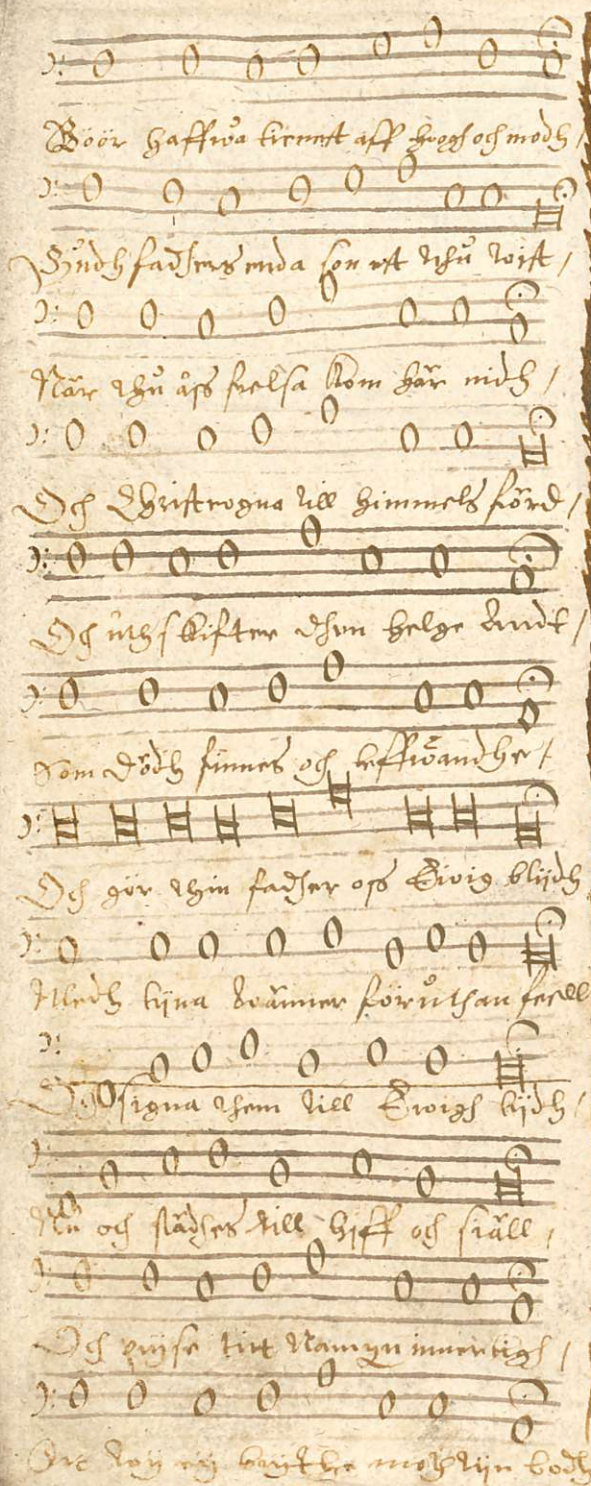 Böör haffwa tienest aff hoogh och modh /
Gudh fadhers enda son est thu wist /
När thu åss frelsa kom här nidh /
Och Christrogna till himmels förd /
Och uthskifter dhen helge Andt /
Som dödh finnes och leffwandhe /
Och gör thin fadher oss Ewig blijdh
Medh tijna wänner föruthan feell
Och signa them till Ewigh tijdh /
Nu och städhes till lijff och siäll /
Och prijse titt Namyn innerligh /